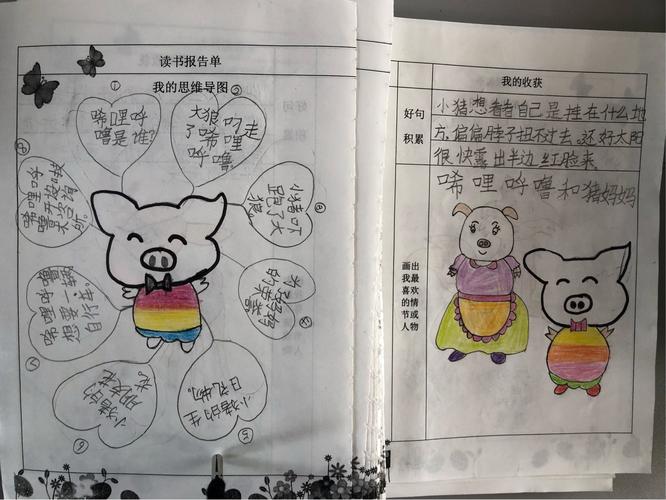 读书报告单
我的思维导图
①
唏哩呼
噜是谁?
②
大狼叼走
了唏哩
呼噜
③
小猪吓
跑了大
狼。
④
为了妈妈
的笑着
⑤
小猪的生
日礼物。
⑥
小猪的
朋友花
花。
⑦
唏哩呼噜
想要一辆
自行车。
⑧
唏哩呼
噜开投诊
所。
我的收获
好句
积累
小猪想看看自己是挂在什么地
方,偏偏脖子扭不过去,还好太阳
很快露出半边红脸来
画出
我最
喜欢
的情
节或
人物
唏哩呼噜和猪妈妈